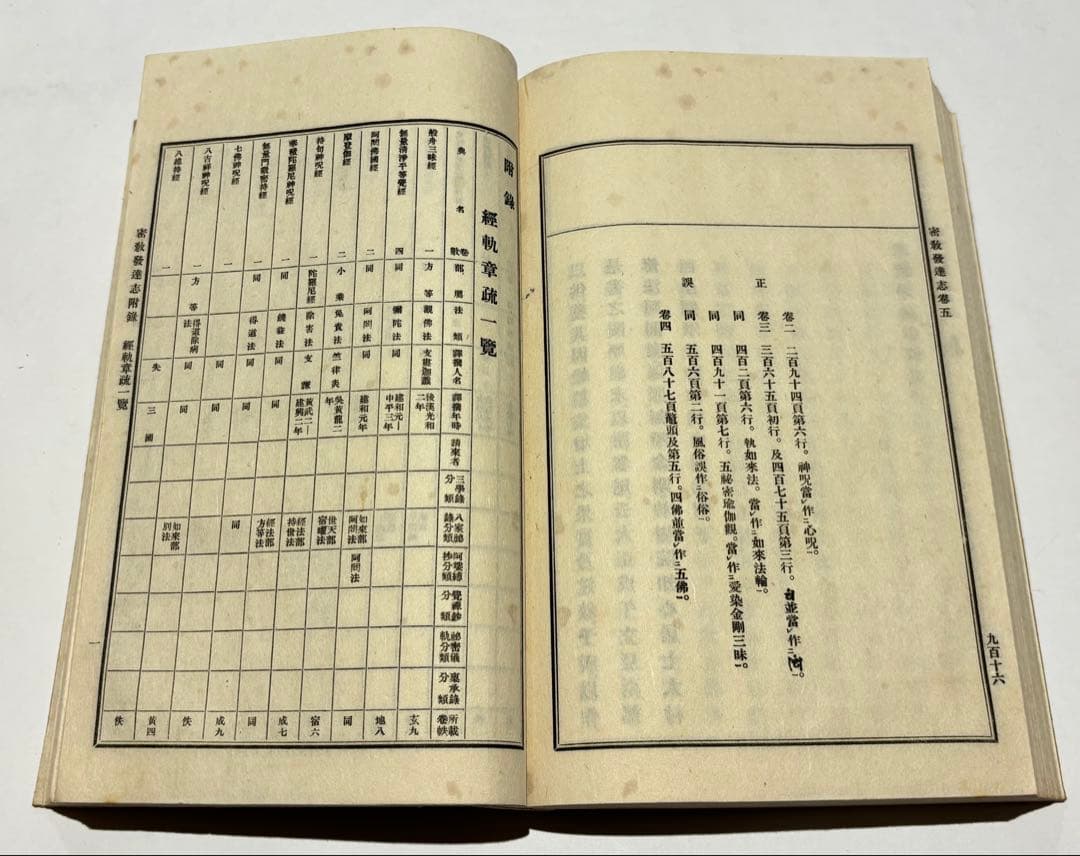 密教發達志卷五
正
誤
卷二　二百九十四頁第六行。神呪當レ作二心呪一。
卷三　三百六十五頁初行。及四百七十五頁第三行。
並當レ作二
同　四百二頁第六行。執如來法。當レ作二如來法輪一。
同　四百九十一頁第七行。五祕密瑜伽觀。當レ作二愛染金剛三昧一。
同　五百六頁第二行。風俗誤作二俗俗一。
卷四　五百八十七頁鼇頭及第五行。四佛並當レ作二五佛一。
九百十六
附錄
經軌章疏一覽
典名　卷數　部屬　法類　譯撰人名　譯撰年時　請來者　三學錄分類　八家祕錄分類　阿娑縛抄分類　覺禪鈔分類　祕密儀軌分類　惠承錄分類　所載卷帙
般舟三昧經　一　方等　觀佛法　支婁迦讖　後漢光和二年　玄九
無量淸淨平等覺經　四　同　彌陀法　同　建和元—中平三年　地八
阿閦佛國經　二　同　阿閦法　同　建和元年　如來部阿閦法　阿閦法　同
摩登伽經　二　小乘　免責法　竺律炎　吳黃龍二年　後天部宿曜法　宿六
持句神呪經　一　陀羅尼經　除害法　支謙　黃武二—建興二年　經法部持世法　成七
華積陀羅尼神呪經　一　同　饒益法　同　同　經法部方等法　同
無量門微密持經　一　同　得道法　同　同　同　成九
七佛神呪經　一　同　同　佚
八吉祥神呪經　一　方等　得道除病法　同　同　如來部別法　黃四
八陽神經　一　失　三國　佚
密教發達志附錄　經軌章疏一覽
一